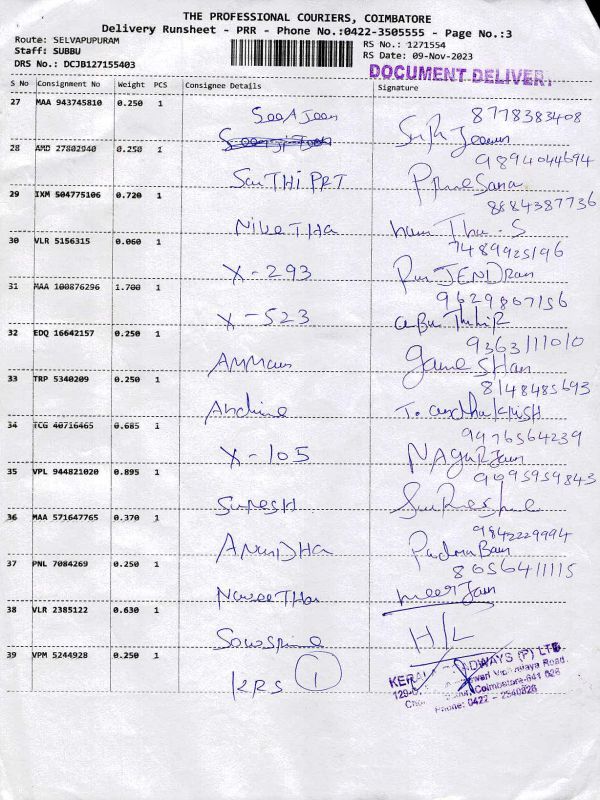 THE PROFESSIONAL COURIERS, COIMBATORE
Delivery Runsheet - PRR - Phone No.:0422-3505555 - Page No.:3
Route: SELVAPUPURAM
RS No.: 1271554
Staff: SUBBU
RS Date: 09-Nov-2023
DRS No.: DCJB127155403
DOCUMENT DELIVER
S No Consignment No Weight PCS Consignee Details Signature
27 MAA 943745810 0.250 1
8778383408
28 AMD 27802940 0.250 1
9894044694
SaiTHi PRT
29 IXM 504775106 0.720 1
8884387736
NiveTHa
30 VLR 5156315 0.060 1
7489925196
X-293 RaJENDRan
31 MAA 100876296 1.700 1
9629867156
X-523
32 EDQ 16642157 0.250 1
9363111010
ganeSHan
33 TRP 5340209 0.250 1
8148485693
34 TCG 40716465 0.685 1
9976564239
X-105 NAGURJan
35 VPL 944821020 0.895 1
9095959843
SureSH
36 MAA 571647765 0.370 1
9842229994
AnuDHa
37 PNL 7084269 0.250 1
8056411115
NaveeTHa meerJan
38 VLR 2385122 0.630 1
H/L
39 VPM 5244928 0.250 1
KRS 1
ROADWAYS (P) LTD
Road,
Coimbatore-641 026
Phone: 0422 - 2540826